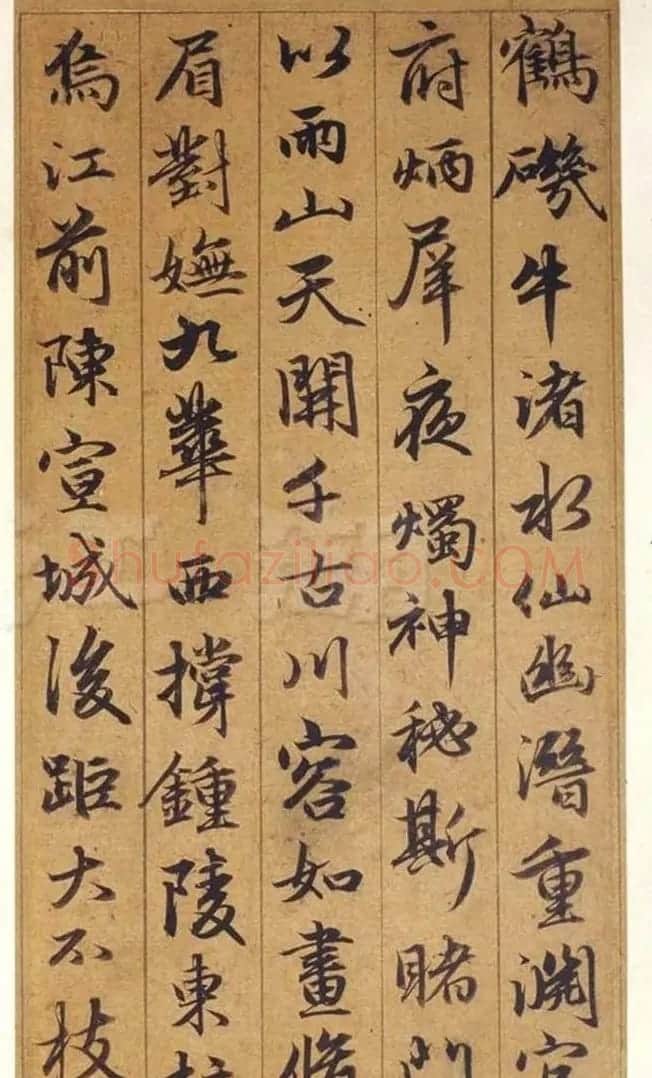 鶴磯牛渚水仙幽潛重淵宮
府炳犀夜燭神秘斯睹門
以兩山天開千古川容如畫脩
眉對嫵九華西撐鍾陵東
烏江前陳宣城後距大不枝
shufaziliao.COM